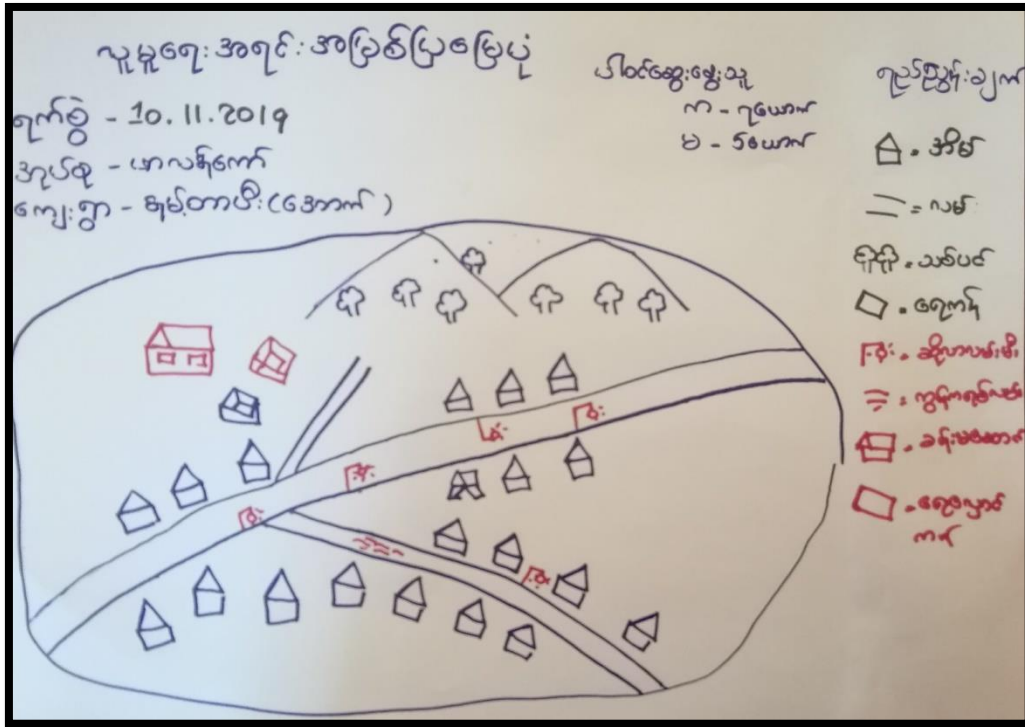 လူမှုရေးအရင်းအမြစ်ပြမြေပုံ
ရက်စွဲ - 10.11.2019
အုပ်စု - ဟာလန်ကော်
ကျေးရွာ - ချမ့်တာဖီး (အောက်)
ပါဝင်ဆွေးနွေးသူ
က - ၇ယောက်
မ - ၆ယောက်
ရည်ညွှန်းချက်
အိမ်
= လမ်း
သစ်ပင်
ရေကန်
ဆိုလာလမ်းမီး
= ကွန်ကရစ်လမ်း
ခန်းမဆောင်
ရေလှောင်
ကန်